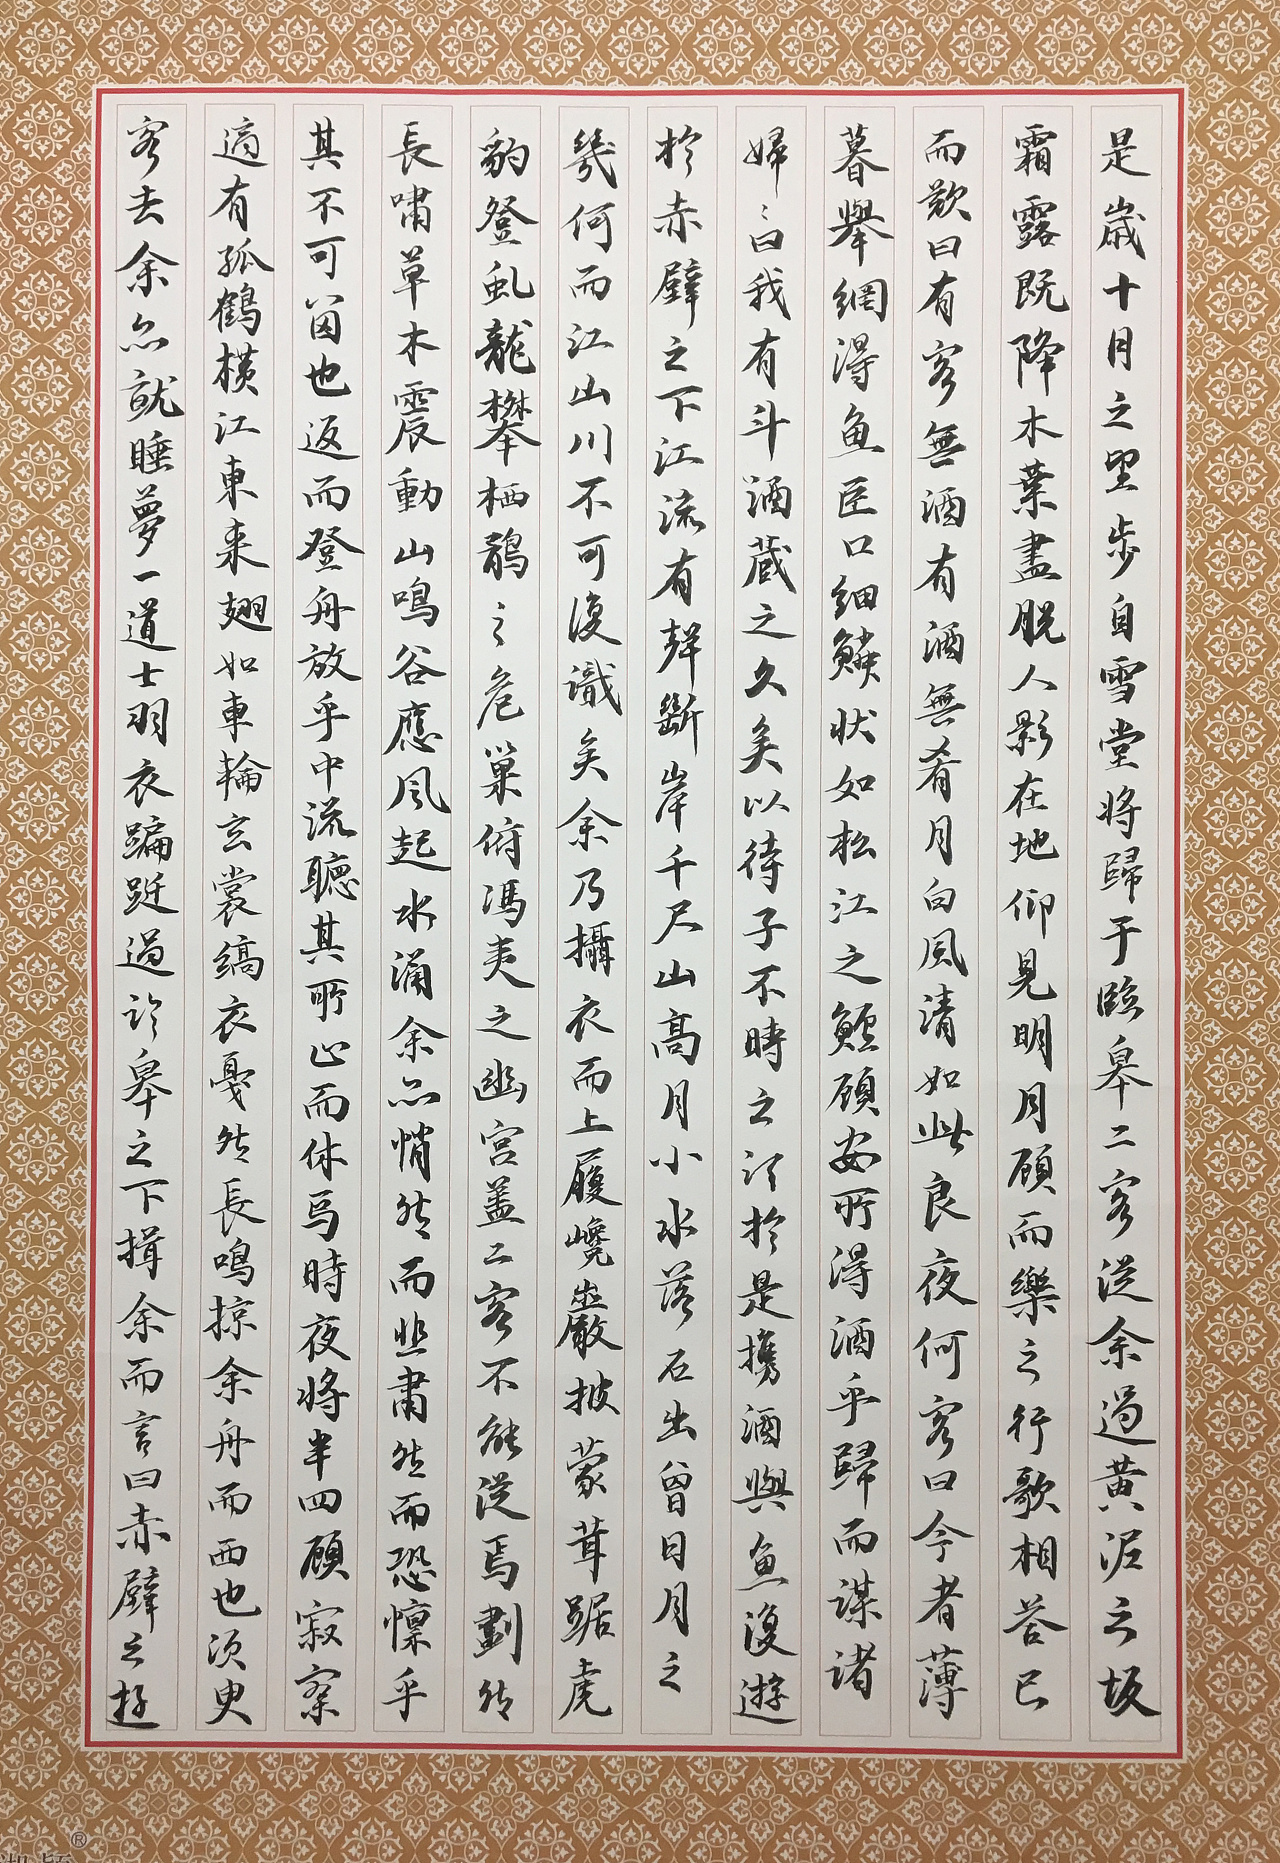 是歲十月之望步自雪堂將歸于臨皋二客從余過黃泥之坂
霜露既降木葉盡脫人影在地仰見明月顧而樂之行歌相答已
而歎曰有客無酒有酒無肴月白風清如此良夜何客曰今者薄
暮舉網得魚臣口細鱗狀如松江之鱸顧安所得酒乎歸而謀諸
婦〻曰我有斗酒藏之久矣以待子不時之須於是攜酒與魚復遊
於赤壁之下江流有聲斷岸千尺山高月小水落石出曾日月之
幾何而江山川不可復識矣余乃攝衣而上履巉巖披蒙茸踞虎
豹登虬龍攀栖鶻之危巢俯馮夷之幽宮蓋二客不能從焉劃然
長嘯草木震動山鳴谷應風起水涌余亦悄然而悲肅然而恐懍乎
其不可留也返而登舟放乎中流聽其所止而休焉時夜將半四顧寂寥
適有孤鶴橫江東來翅如車輪玄裳縞衣戛然長鳴掠余舟而西也須臾
客去余亦就睡夢一道士羽衣蹁躚過臨皋之下揖余而言曰赤壁之遊